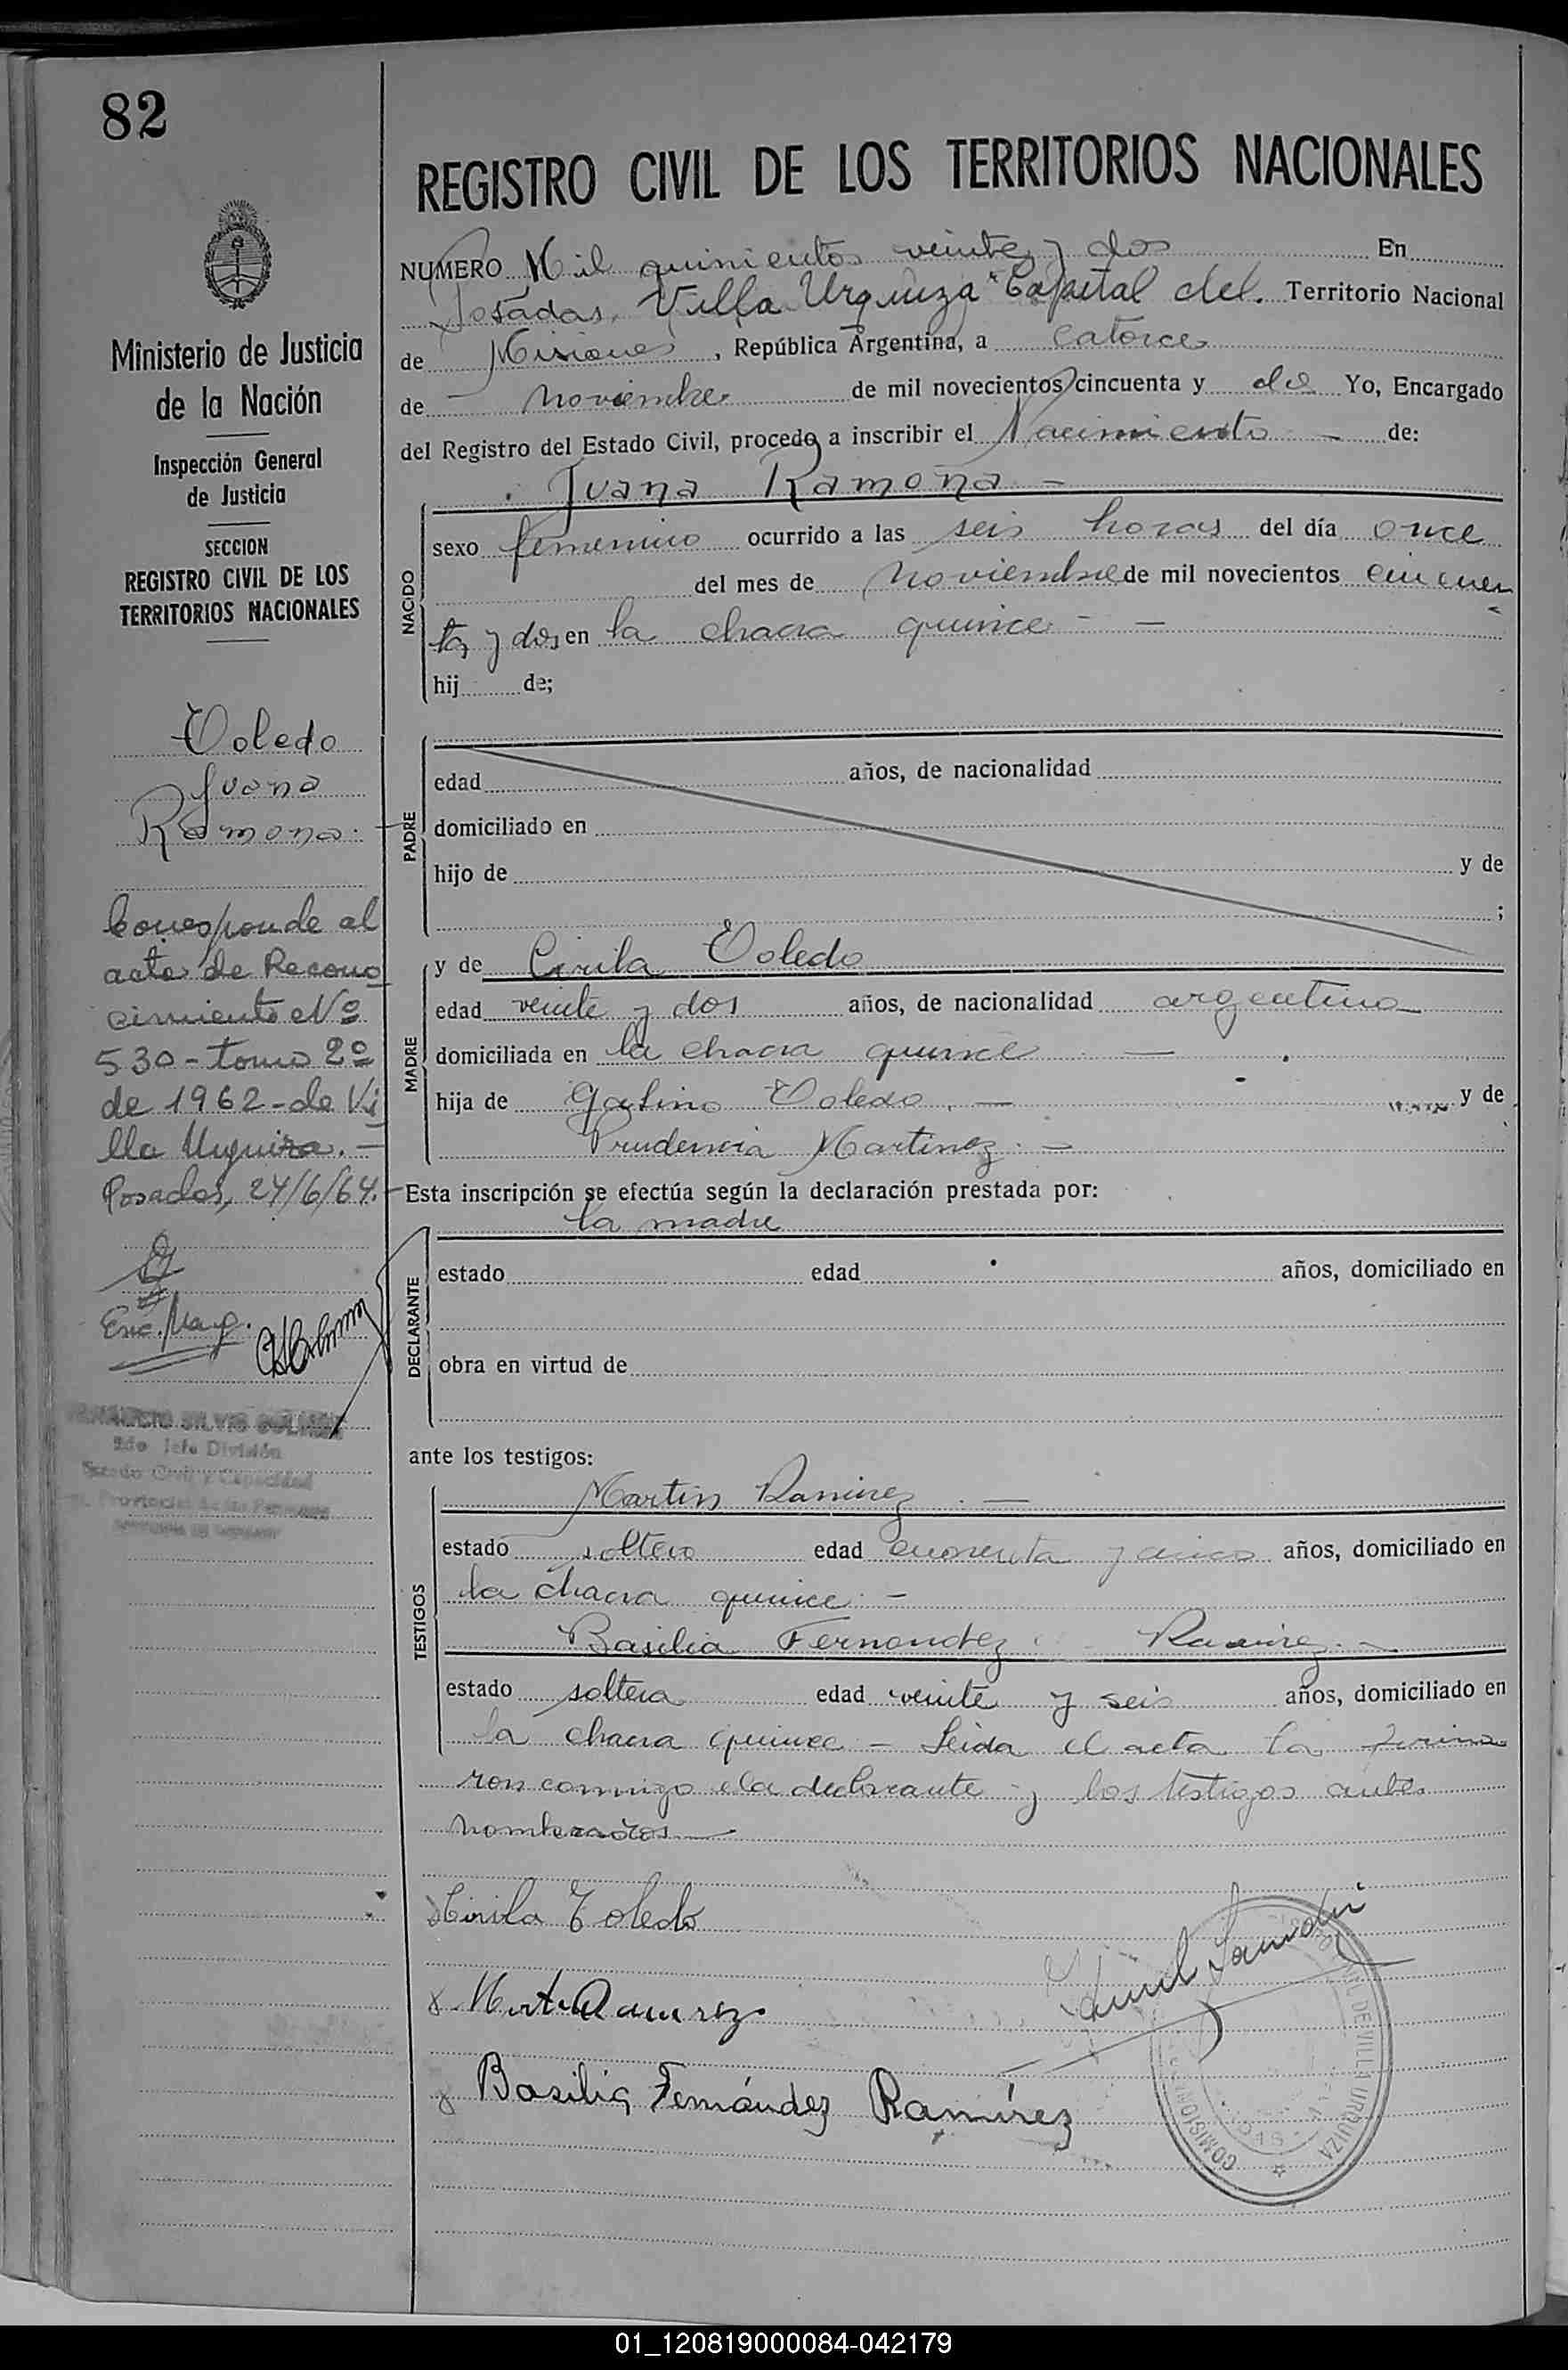 82
REGISTRO CIVIL DE LOS TERRITORIOS NACIONALES
Ministerio de Justicia
de la Nación
Inspección General
de Justicia
SECCION
REGISTRO CIVIL DE LOS
TERRITORIOS NACIONALES
Toledo
Juana
Ramona.
Corresponde al
acta de Recono
cimiento Nº
530 - tomo 2º
de 1962 - de Vi
lla Urquiza. -
Posadas, 24/6/64.
Enc. Marg.
2do Jefe División
Estado Civil y Capacidad
NUMERO Mil quinientos veinte y dos En
Posadas, Villa Urquiza "Capital del. Territorio Nacional
de Misiones, República Argentina, a catorce
de noviembre de mil novecientos cincuenta y dos Yo, Encargado
del Registro del Estado Civil, procedo a inscribir el Nacimiento - de:
Juana Ramona -
NACIDO
sexo femenino ocurrido a las seis horas del día once
del mes de noviembre de mil novecientos cincuen
ta y dos en la chacra quince - -
hij de;
PADRE
edad años, de nacionalidad
domiciliado en
hijo de y de
;
MADRE
y de Cirila Toledo
edad veinte y dos años, de nacionalidad argentina
domiciliada en la chacra quince -
hija de Galino Toledo. - y de
Prudencia Martinez. -
Esta inscripción se efectúa según la declaración prestada por:
la madre
DECLARANTE
estado edad años, domiciliado en
obra en virtud de
ante los testigos:
TESTIGOS
Martin Ramirez. -
estado soltero edad cuarenta y cinco años, domiciliado en
la chacra quince. -
Basilia Fernandez Ramirez. -
estado soltera edad veinte y seis años, domiciliado en
la chacra quince - Leida el acta la firma
ron conmigo la declarante y los testigos antes
nombrados -
Cirila Toledo
x Martin Ramirez
x Basilia Fernández Ramírez
COMISION DE VILLA URQUIZA
01_120819000084-042179